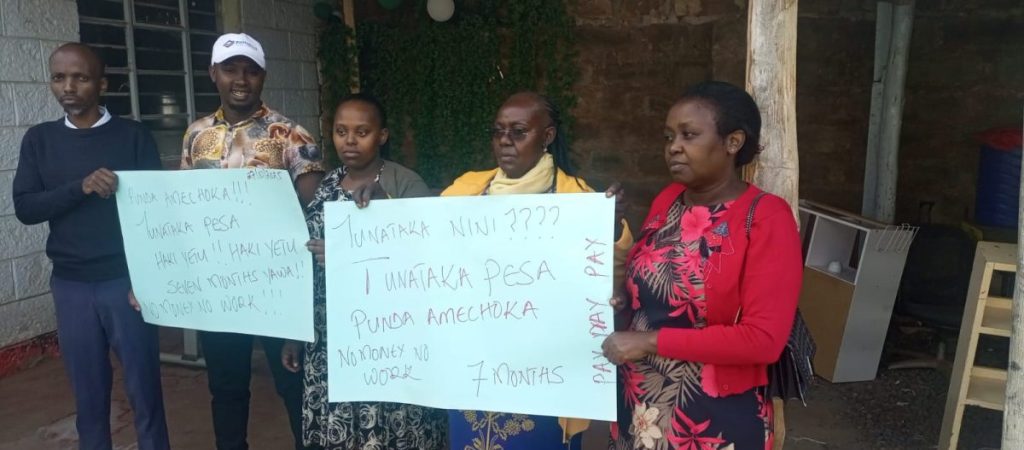 PUNDA AMECHOKA!!!
TUNATAKA PESA
HAKI YETU!! HAKI YETU
SEVEN MONTHS
NO MONEY NO WORK!!!
TUNATAKA NINI????
TUNATAKA PESA
PUNDA AMECHOKA
NO MONEY NO
WORK
7 MONTHS
PAY PAY PAY